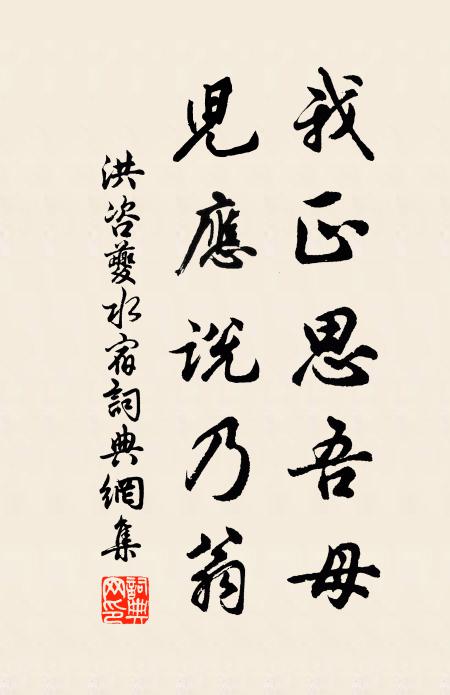 我正思吾母
兒應說乃翁
洪咨夔水宿詞典網集
詞典網印